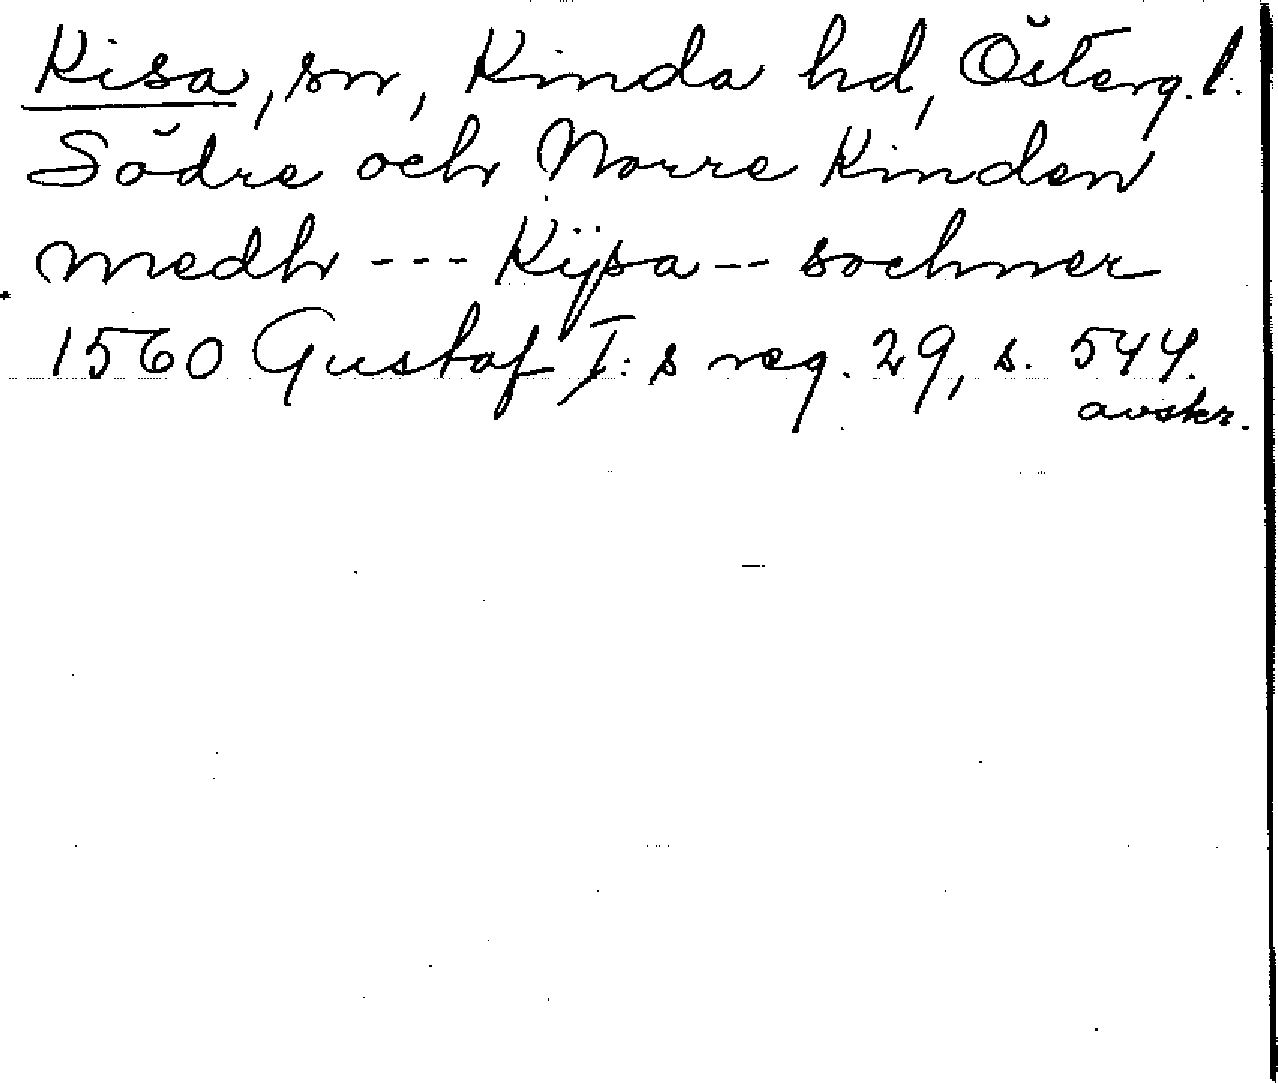 Kisa, sn, Kinda hd, Österg. l.
Södre och Norre Kinden
medh --- Kÿsa -- sochner
1560 Gustaf I:s reg. 29, s. 544.
avskr.